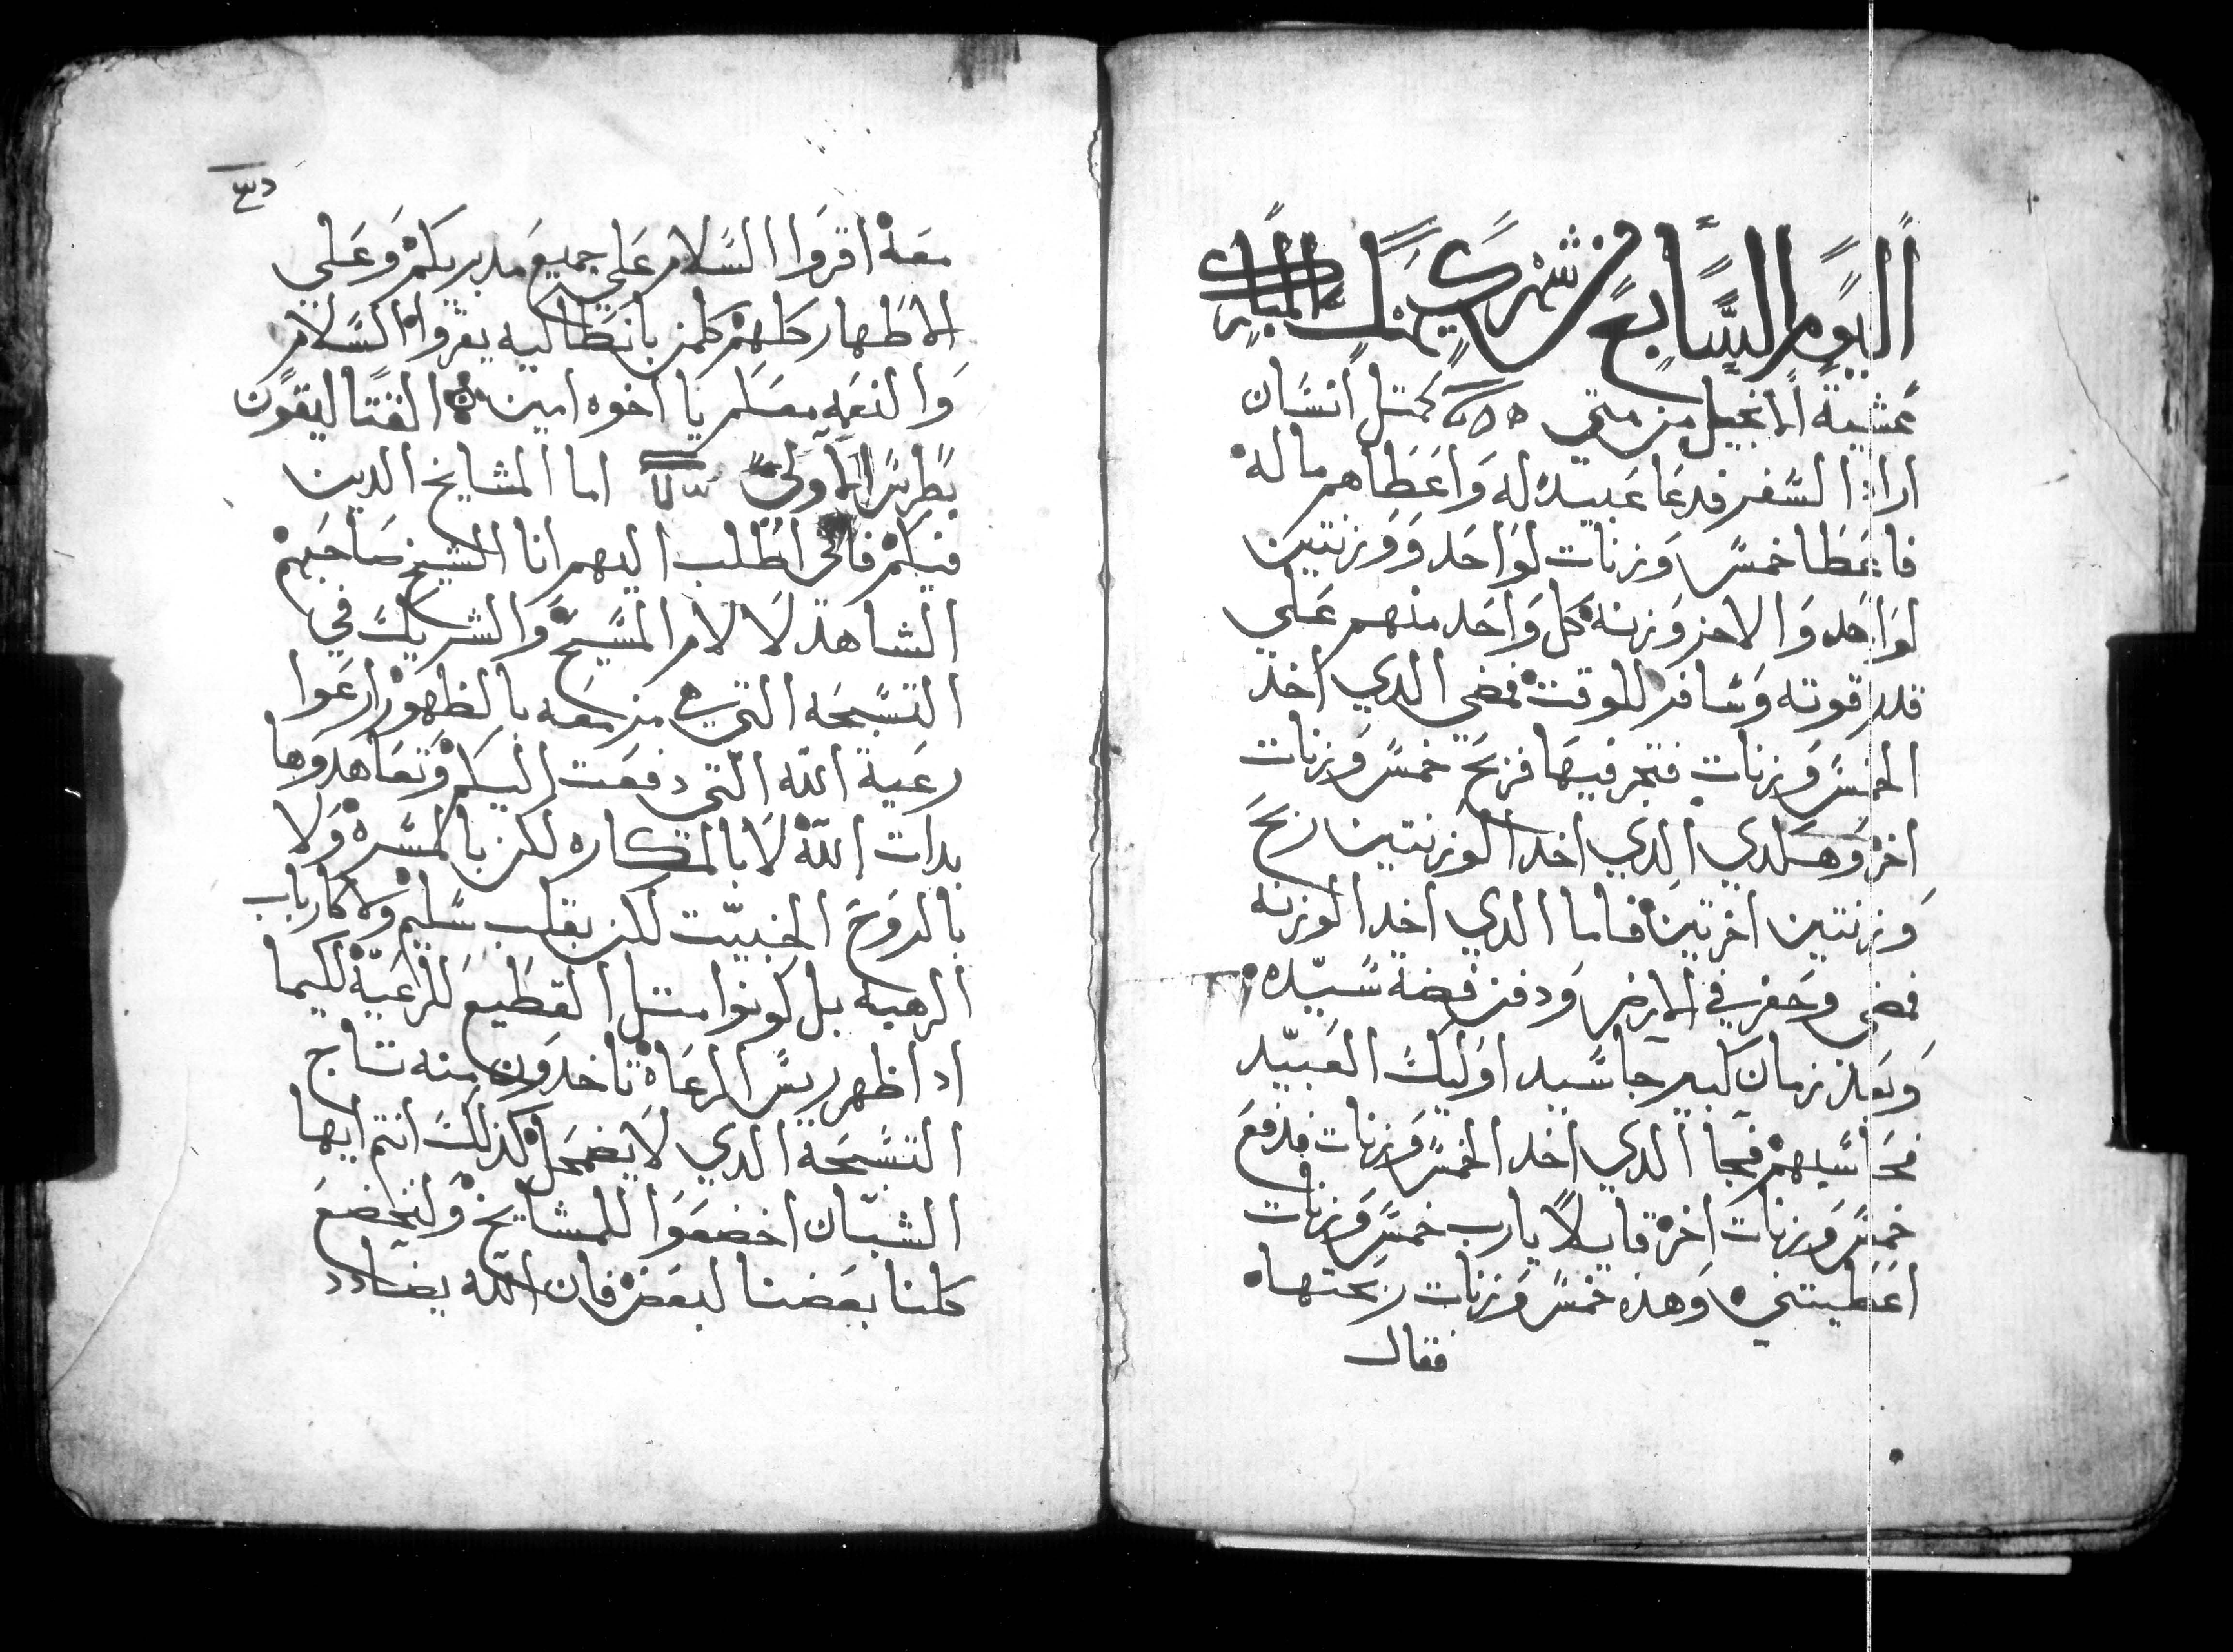 اليوم السابع من شهر كيهك المبارك
عشية الانجيل من متي كمتل انسان
اراد السفر فدعا عبيده له واعطاهم ماله
فاعطا خمس وزنات لواحد ووزنتين
لواحد والاخر وزنه كل واحد منهم علي
قدر قوته وسافر للوقت فمضي الدي اخد
الخمس وزنات فتجر فيها فربح خمس وزنات
اخر وهكدي الدي اخد الوزنتين ربح
وزنتين اخرتين فاما الدي اخد الوزنه
فمضي وحفر في الارض ودفن فضة سيده
وبعد زمان كبير جا سيد اوليك العبيد
فحاسبهم فجا الدي اخد الخمس وزنات فدفع
خمس وزنات اخر قايلا يارب خمس وزنات
اعطيتني وهده خمس وزنات ربحتها
فقال
معنه اقروا السلام علي جميع مدبريكم وعلي
الاطهار كلهم كلمن بانطاكيه يقروا السلام
والنعمه معكم يا اخوه امين القتاليقون
بطرس الاولي اما المشايخ الدين
فيكم فاني اطلب اليهم انا الشيخ صاحبهم
الشاهد لالام المسيح والشريك في
التسبحه التي هي مزمعه بالظهور ارعوا
رعية الله التي دفعت اليكم وتعاهدوها
بدات الله لا بالمكاره لكن بالمسره ولا
بالروح الخبيت لكن بقلب سليم ولا كارباب
الرهبه بل كونوا متل القطيع للرعيه لكيما
ادا ظهر ريس الرعاه تاخدون منه تاج
التسبحة الدي لا يضمحل كذلك انتم ايها
الشبان اخضعوا للمشايخ وليخضع
كلنا بعضنا لبعض فان الله يضادد